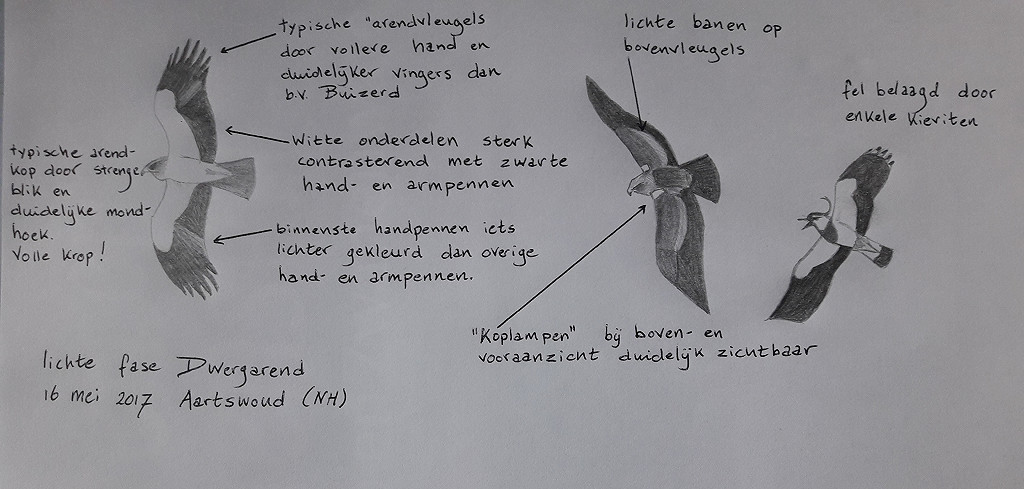 typische "arendvleugels
door vollere hand en
duidelijker vingers dan
b.v. Buizerd
Witte onderdelen sterk
contrasterend met zwarte
hand- en armpennen
binnenste handpennen iets
lichter gekleurd dan overige
hand- en armpennen.
typische arend-
kop door strenge
blik en
duidelijke mond-
hoek.
Volle krop!
lichte banen op
bovenvleugels
fel belaagd door
enkele Kieviten
"Koplampen" bij boven- en
vooraanzicht duidelijk zichtbaar
lichte fase Dwergarend
16 mei 2017 Aartswoud (NH)